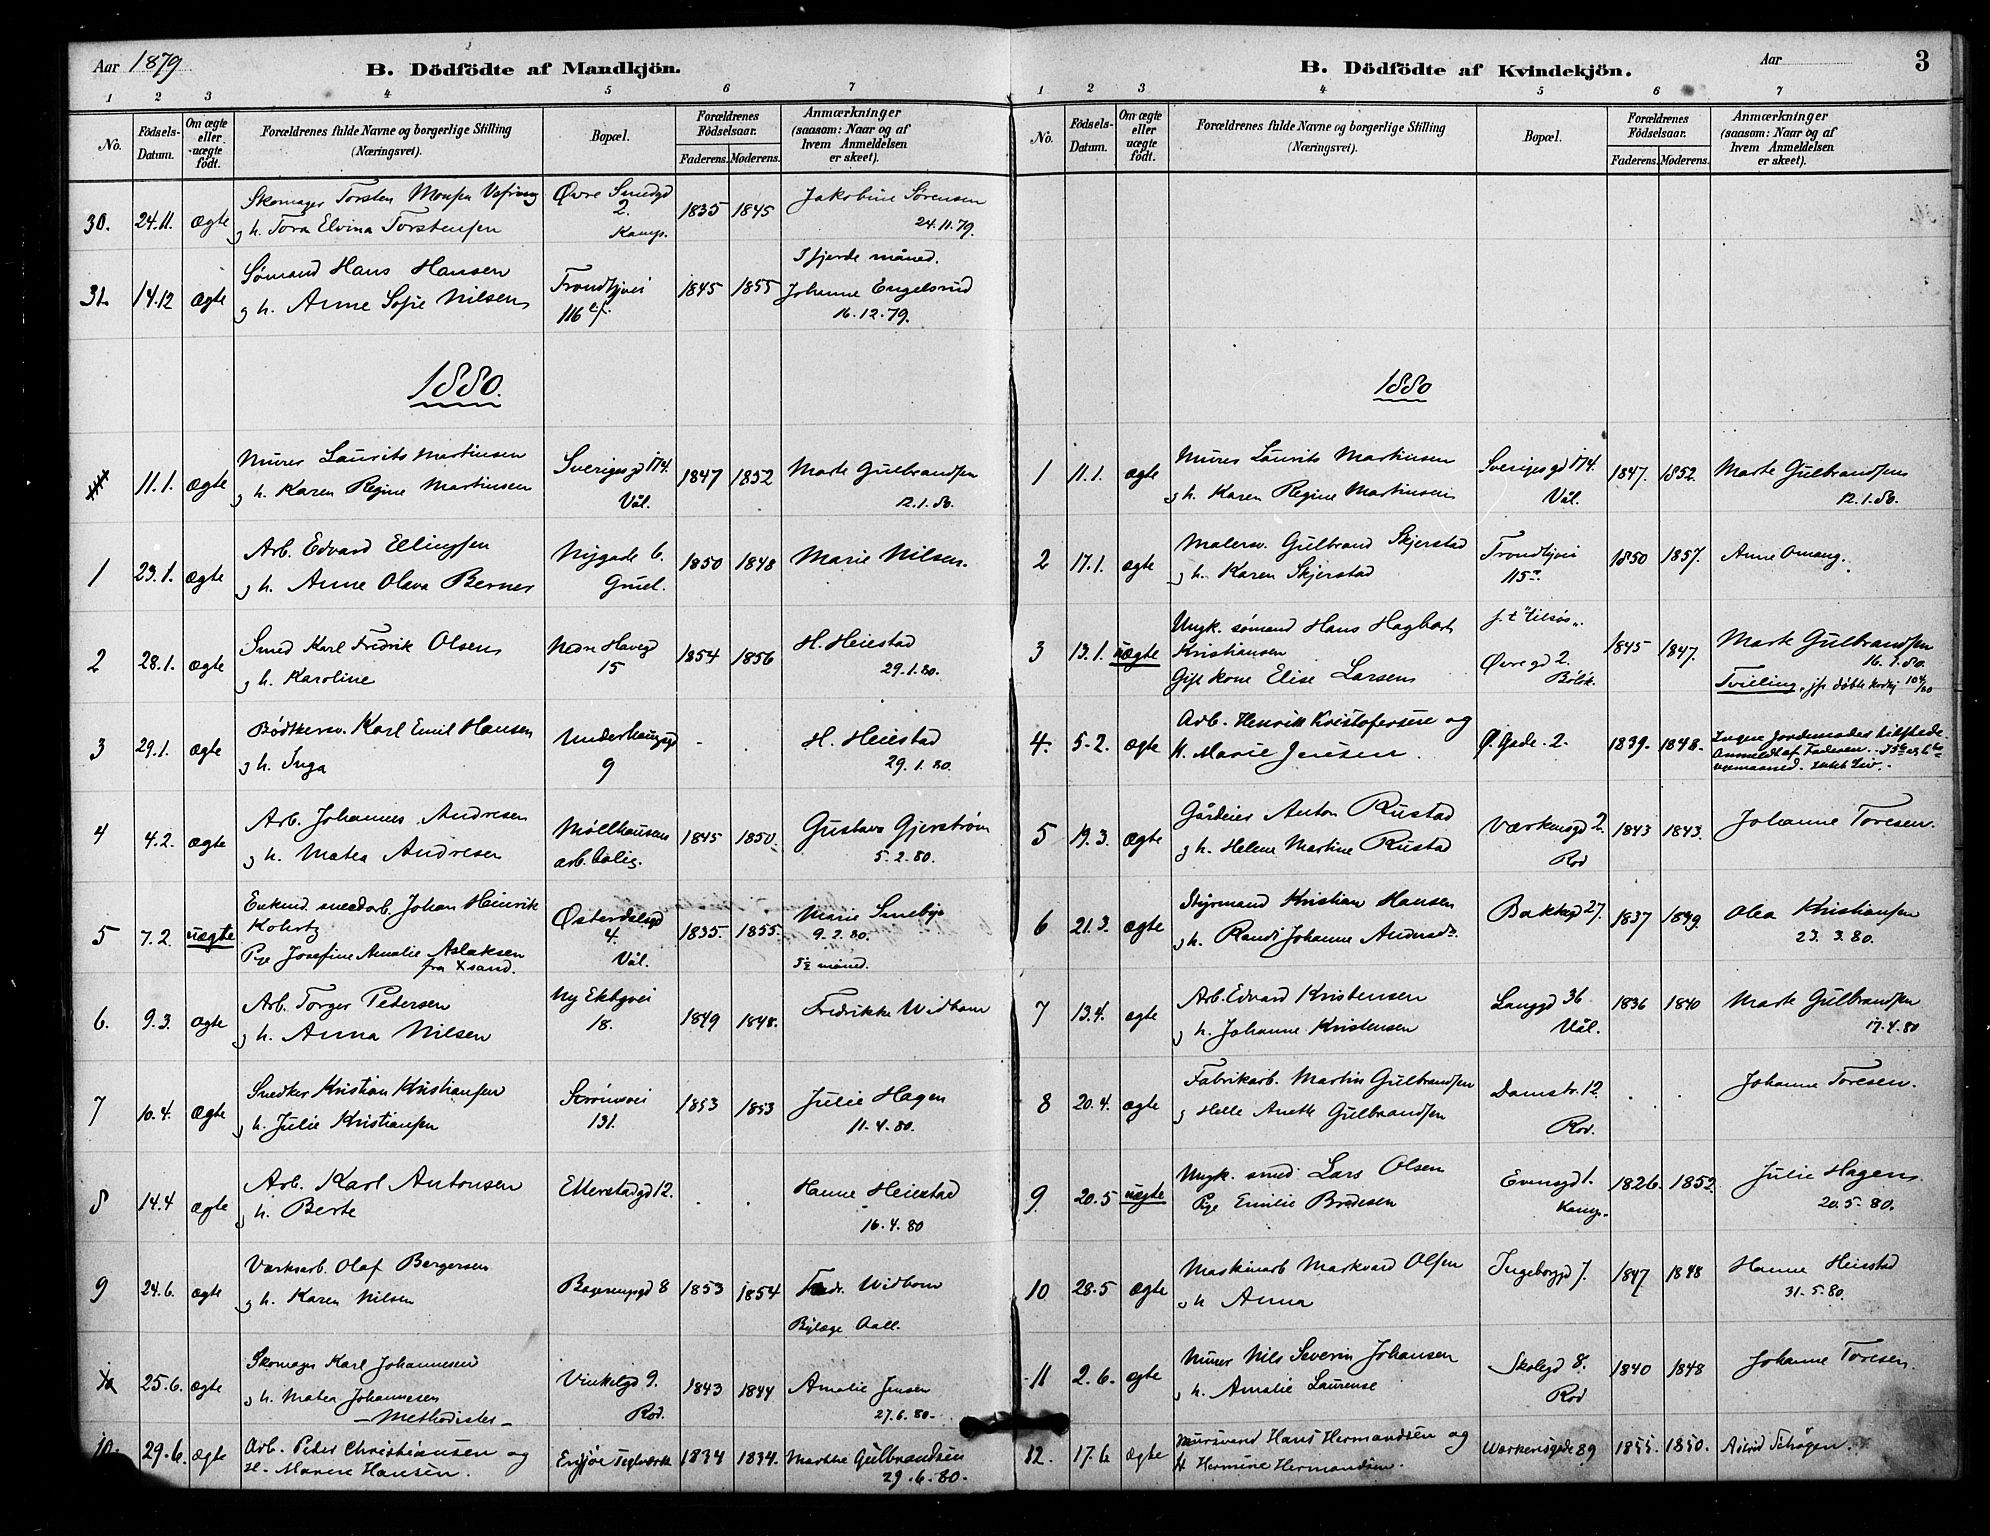 Aar 1879
B. Dödfödte af Mandkjön.
1 2 3 4 5 6 7
No.
Födsels-Datum.
Om ægte eller uægte födt.
Forældrenes fulde Navne og borgerlige Stilling (Næringsvei).
Bopæl.
Forældrenes Födselsaar.
Faderens. Moderens.
Anmærkninger (saasom: Naar og af hvem Anmeldelsen er skeet).
30. 24.11. ægte Skomager Torsten Øvre Smedgd 1835 1845 Jakobine Sørensen
g h. Tora Elvina Torstensen 2. Kamp. 24.11.79.
I fjerde måned.
31. 14.12 ægte Sømand Hans Hansen Trondhjvei 1845 1855 Johanne Engelsrud
g h. Anne Sofie Nilsen 116 16.12.79.
1880.
11.1. ægte Murer Laurits Martinsen Sverigesgd 174. 1847 1852 Marte Gulbrandsen
g h. Karen Regine Martinsen Vål. 12.1.80.
1 23.1. ægte Arb. Edvard Ellingsen Nygade 6. 1850 1848 Marie Nilsen.
g h. Anne Olava Berner
2 28.1. ægte Smed Karl Fredrik Olsen Nedre Havegd 1854 1856 H. Heiestad
g h. Karoline 15 29.1.80.
3 29.1. ægte Bødkersv. Karl Emil Hansen Underhaugsgd - - H. Heiestad
g h. Inga 9 29.1.80.
4 4.2. ægte Arb. Johannes Andresen Møllhausens 1845 1850. Gustava Gjerstrøm
g h. Matea Andresen arb.bolig. 5.2.80.
5 7.2. uægte Enkemd. snedarb. Johan Heinrik Østerdalsgd 1835. 1855. Marie Smeby
Kohrtz 4. 9.2.80.
Pige Josefine Amalie Aslaksen Vål. 5½ måned.
fra Xsand.
6. 9.3. ægte Arb. Torger Petersen Ny Ekbgvei 1849 1848. Fredrikke Widhom
g h. Anna Nilsen 18.
7 10.4. ægte Snedker Kristian Kristiansen 1853 1853 Julie Hagen
g h. Julie Kristiansen 131. 11.4.80.
8 14.4 ægte Arb. Karl Antonsen Etterstadgd 12. . . Hanne Heiestad
g h. Berte 16.4.80
9 24.6. ægte Værksarb. Olaf Bergersen 8 1853 1854 Fredr. Widhom
g h. Karen Nilsen Bylæge Aall.
10 25.6. ægte Skomager Karl Johannesen Vinkelgd 9. 1843 1844 Amalie Jensen
g h. Matea Johannesen Rod. 27.6.80.
- Methodister -
10. 29.6. ægte Arb. Peter Christiansen og Ensjøe Teglværk 1834 1834. Marthe Gulbrandsen
H. Maren Hansen. 29.6.80.
Aar
3
B. Dödfödte af Kvindekjön.
1 2 3 4 5 6 7
No.
Födsels-Datum.
Om ægte eller uægte födt.
Forældrenes fulde Navne og borgerlige Stilling (Næringsvei).
Bopæl.
Forældrenes Födselsaar.
Faderens. Moderens.
Anmærkninger (saasom: Naar og af hvem Anmeldelsen er skeet).
1880
1 11.1. ægte Murer Laurits Martinsen Sverigesgd 174. 1847. 1852. Marte Gulbrandsen
g h. Karen Regine Martinsen Vål. 12.1.80.
2 17.1. ægte Malersv. Gulbrand Skjerstad Trondhjvei 1850 1857. Anne Omang.
g h. Karen Skjerstad 115
3 13.1. uægte Ungk. sømand Hans Hagbart f. t. tilsøs 1845 1847. Marte Gulbrandsen
Kristiansen Øvregd 2. 16.1.80.
Gift kone Elise Larsen Bölök. Tvilling, jfr døbte 104/80
4. 5.2. ægte Arb. Henrik Kristofersen og Ø. Gade. 2. 1839. 1848. Ingen Jordemoder tilstede.
H. Marie Jensen. Anmeldt af Faderen.
5 19.3. ægte Gårdeier Anton Rustad Værkensgd 2. 1843 1843. Johanne Toresen.
g h. Helene Martine Rustad Rod
6 21.3. ægte Styrmand Kristian Hansen Bakkegd 27. 1837 1849. Olea Kristiansen
g h. Randi Johanne Andersdr. 23.3.80.
7 13.4. ægte Arb. Edvard Kristensen Langgd 36 1836 1840 Marte Gulbrandsen
g h. Johanne Kristensen Vål. 17.4.80
8 20.4. ægte Fabrikarb. Martin Gulbrandsen Damstr. 12. . . Johanne Toresen.
g Helle Anette Gulbrandsen Rod.
9 20.5 uægte Ungk. smed Lars Olsen Evensgd 1. 1826. 1852. Julie Hagen.
Pige Emilie Bredesen Kamp. 20.5.80.
10 28.5 ægte Maskinarb Markvard Olsen Ingeborggd 7. 1847 1848 Hanne Heiestad
g h Anna 31.5.80.
11 2.6. ægte Murer Nils Severin Johansen Skolegd 8. 1840 1848 Johanne Toresen.
g h. Amalie Laurense Rod
12. 17.6 ægte Mursvend Hans Hermandsen og Wærkensgade 89 1855. 1850.
H Hermine Hermandsen.